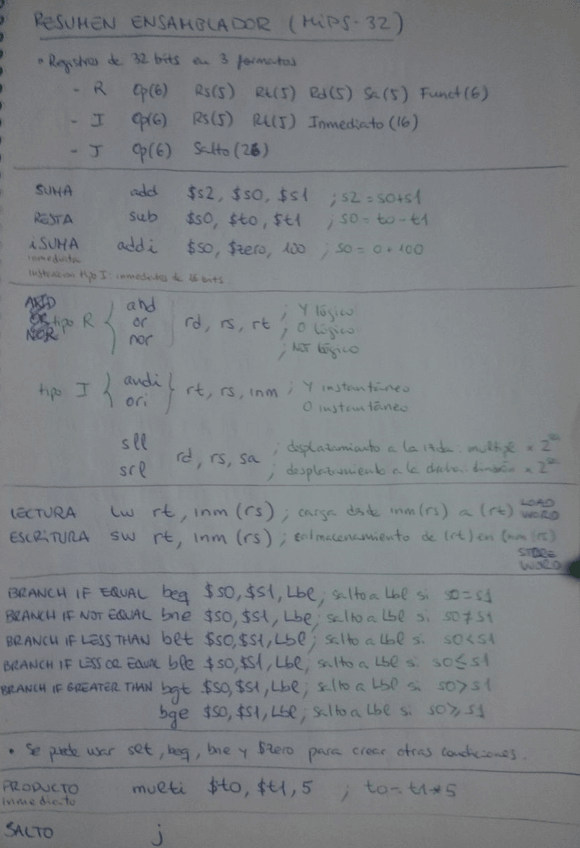 RESUMEN ENSAMBLADOR (MIPS-32)
• Registros de 32 bits en 3 formatos
- R Op(6) Rs(5) Rt(5) Rd(5) Sa(5) Funct(6)
- I Op(6) Rs(5) Rt(5) Inmediato(16)
- J Op(6) Salto(26)
SUMA add $s2, $s0, $s1 ; s2 = s0+s1
RESTA sub $s0, $t0, $t1 ; s0 = t0-t1
iSUMA addi $s0, $zero, 100 ; s0 = 0 + 100
inmediata
Instrucción tipo I: inmediatos de 16 bits
AND
OR
NOR
tipo R { and or nor } rd, rs, rt ; Y lógico
; O lógico
; lógico
tipo I { andi ori } rt, rs, inm ; Y instantáneo
O instantáneo
sll
srl
rd, rs, sa ; desplazamiento a la izda.
; desplazamiento a la
LECTURA lw rt, inm (rs) ; carga desde inm(rs) a (rt) LOAD WORD
ESCRITURA sw rt, inm (rs) ; almacenamiento de (rt) en inm(rs)
STORE WORD
BRANCH IF EQUAL beq $s0, $s1, Lbl ; salto a Lbl si s0=s1
BRANCH IF NOT EQUAL bne $s0, $s1, Lbl ; salto a Lbl si s0≠s1
BRANCH IF LESS THAN blt $s0, $s1, Lbl ; salto a Lbl si s0<s1
BRANCH IF LESS OR EQUAL ble $s0, $s1, Lbl ; salto a Lbl si s0≤s1
BRANCH IF GREATER THAN bgt $s0, $s1, Lbl ; salto a Lbl si s0>s1
bge $s0, $s1, Lbl ; salto a Lbl si s0≥s1
• Se puede usar slt, beq, bne y $zero para crear otras condiciones.
PRODUCTO multi $t0, $t1, 5 ; t0 = t1*5
inmediato
SALTO j